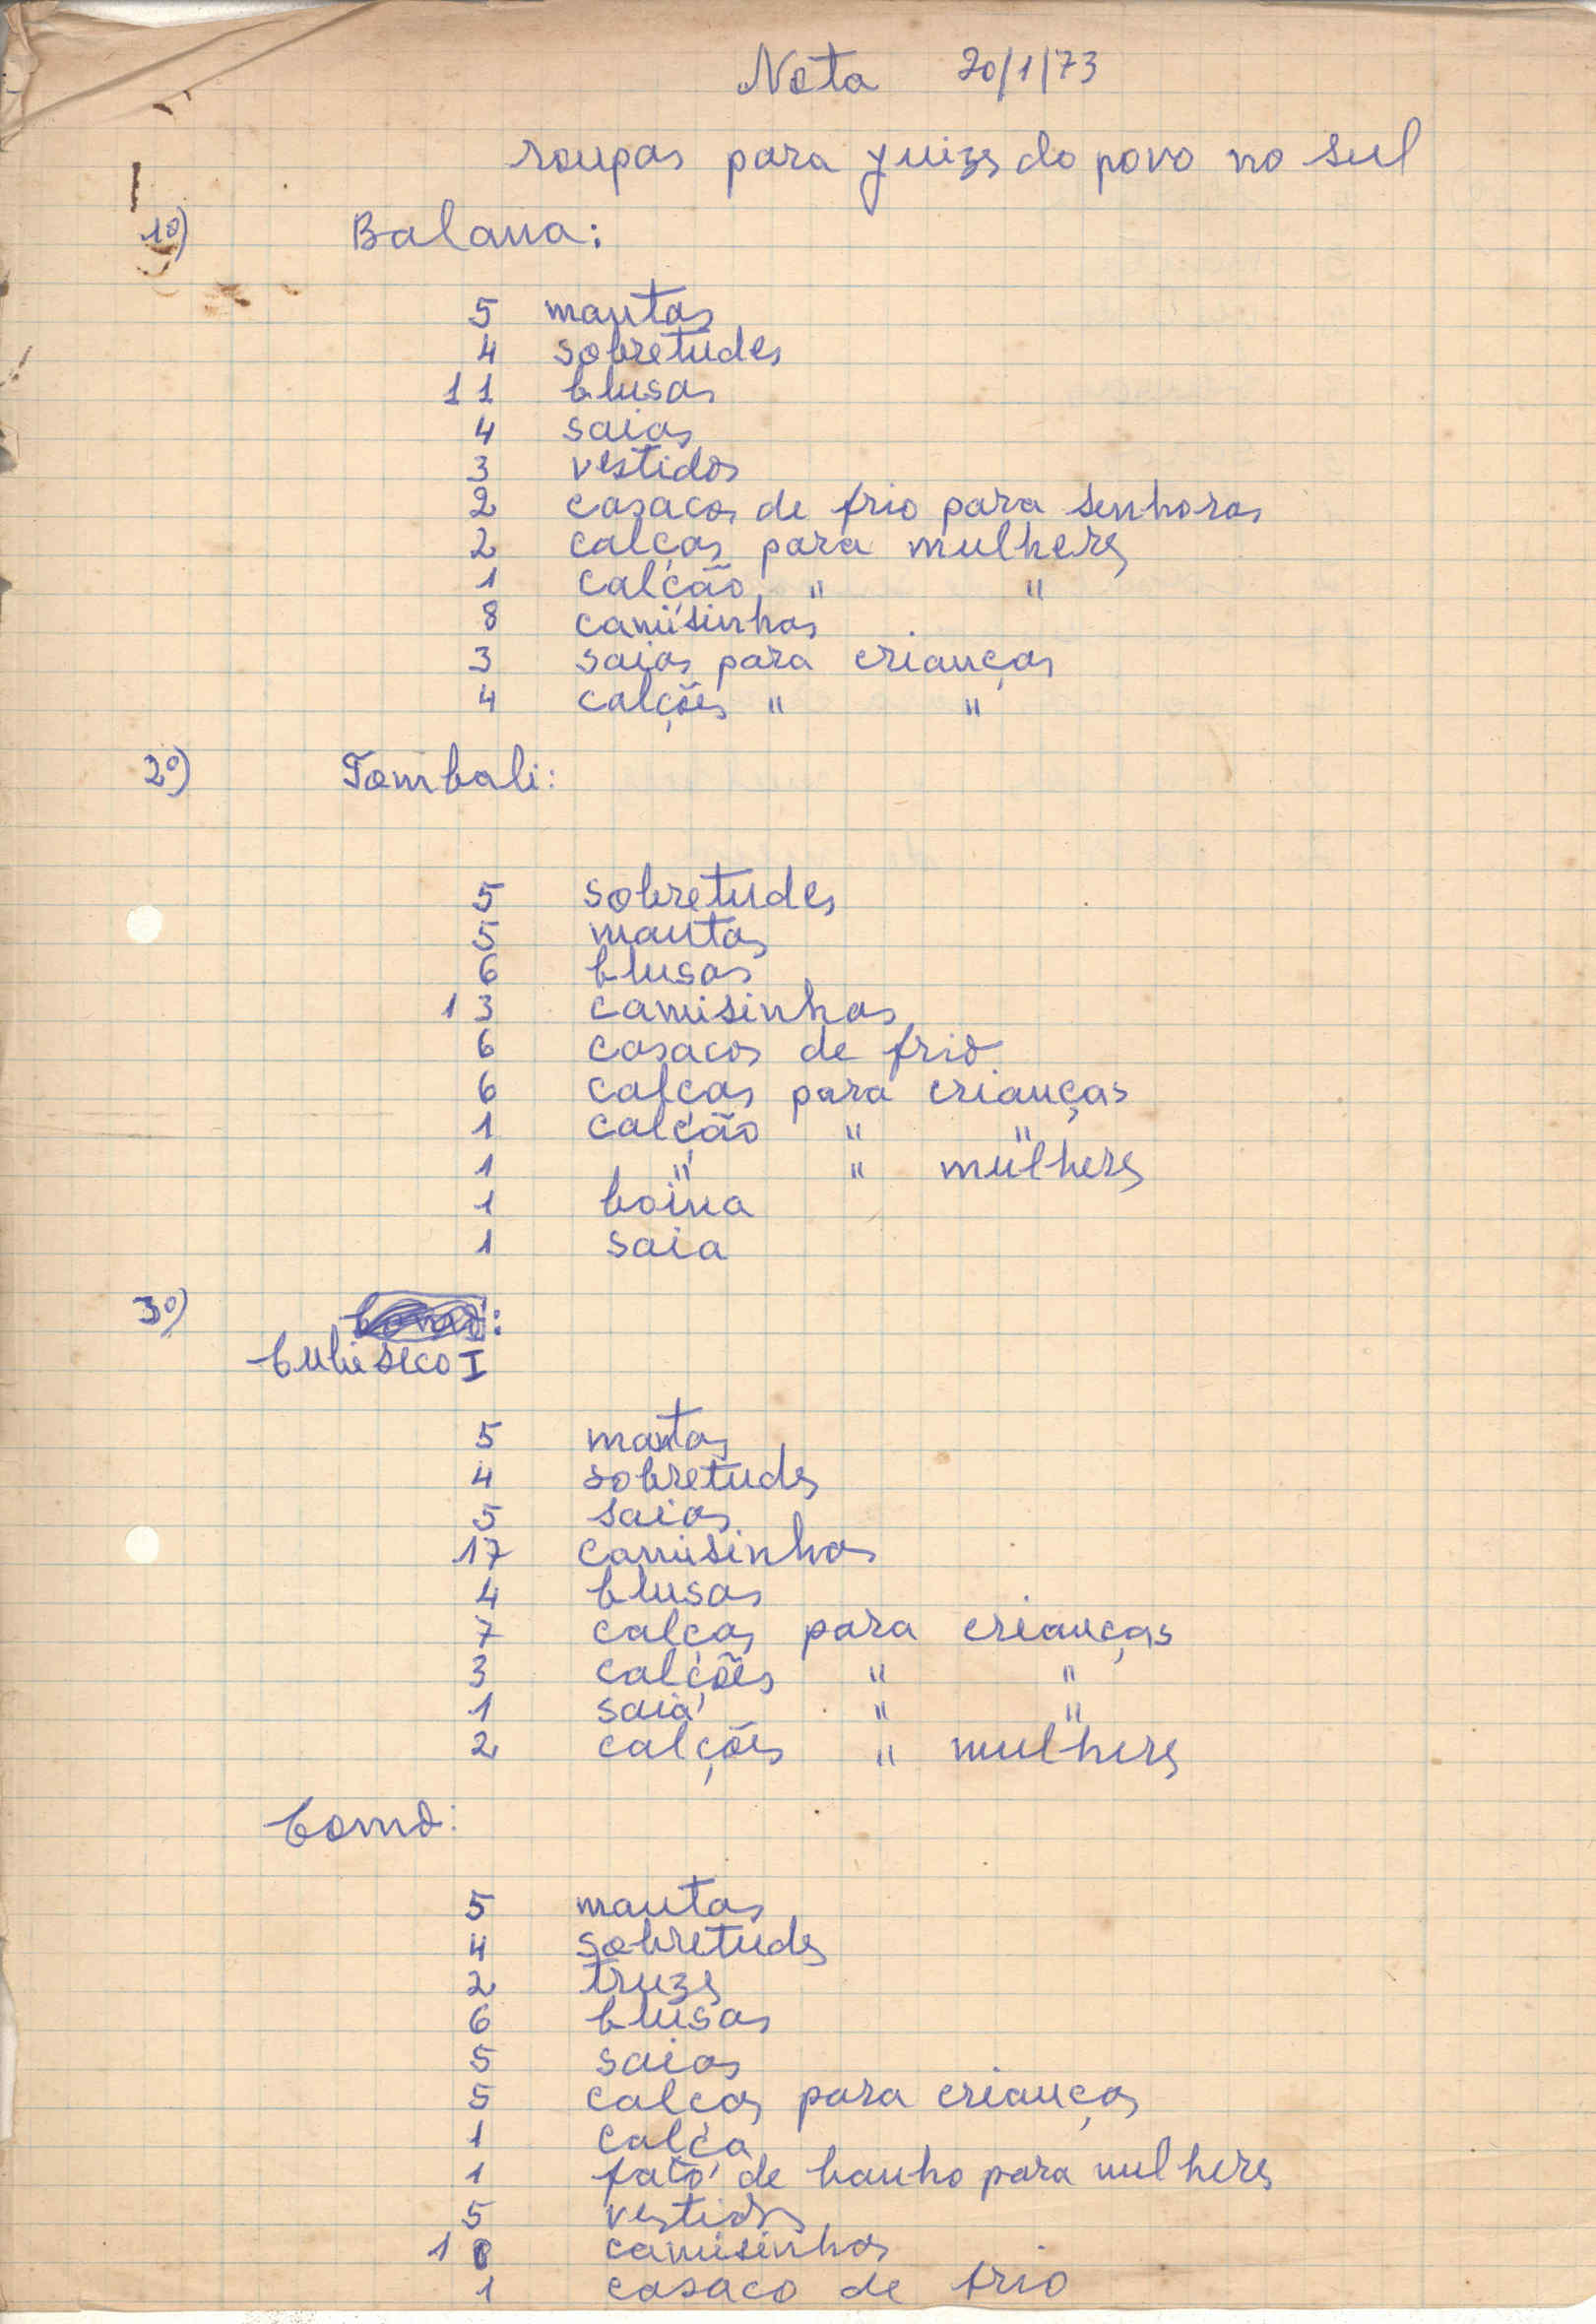 Nota 20/1/73
roupas para juizes do povo no sul
1º) Balana:
5 mantas
4 sobretudes
11 blusas
4 saias
3 vestidos
2 casacos de frio para senhoras
2 calças para mulheres
1 calção " "
8 camisinhas
3 saias para crianças
4 calções " "
2º) Tombali:
5 sobretudes
5 mantas
6 blusas
13 camisinhas
6 casacos de frio
6 calças para crianças
1 calção " "
1 " " mulheres
1 boina
1 saia
3º)
Cubiseco I
5 mantas
4 sobretudes
5 saias
17 camisinhas
4 blusas
7 calças para crianças
3 calções " "
1 saia " "
2 calções " mulheres
Como:
5 mantas
4 sobretudes
2 truzes
6 blusas
5 saias
5 calças para crianças
1 calça
1 fato de banho para mulheres
5 vestidos
camisinhas
1 casaco de frio